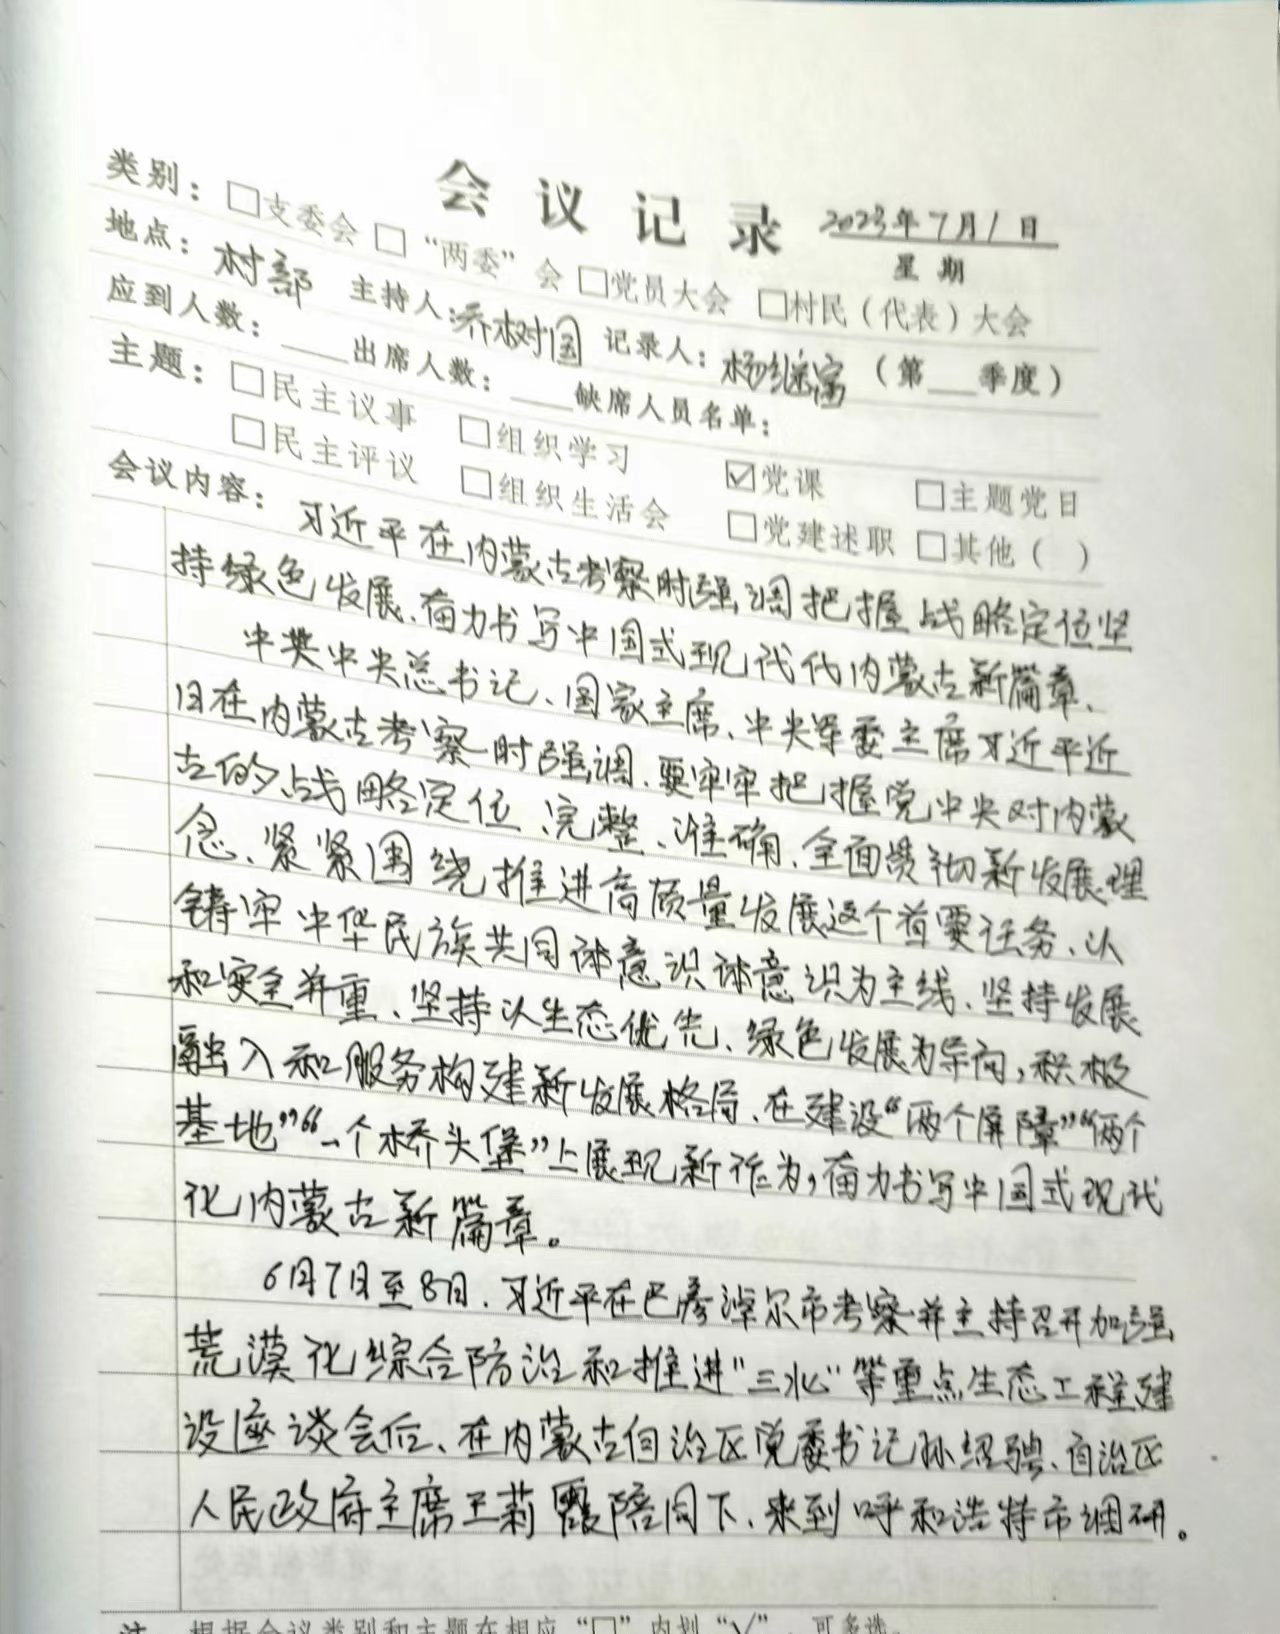 会议记录 2023年7月1日
星期
类别：□支委会 □“两委”会 □党员大会 □村民（代表）大会
地点：村部 主持人：乔树国 记录人：杨继富（第__季度）
应到人数：____出席人数：____缺席人员名单：
主题：□民主议事 □组织学习 ☑党课 □主题党日
□民主评议 □组织生活会 □党建述职 □其他（ ）
会议内容：
习近平在内蒙古考察时强调把握战略定位坚
持绿色发展、奋力书写中国式现代代内蒙古新篇章、
中共中央总书记、国家主席、中央军委主席习近平近
日在内蒙古考察时强调、要牢牢把握党中央对内蒙
古的战略定位、完整、准确、全面贯彻新发展理
念、紧紧围绕推进高质量发展这个首要任务、以
铸牢中华民族共同体意识体意识为主线、坚持发展
和安全并重、坚持以生态优先、绿色发展为导向，积极
融入和服务构建新发展格局、在建设“两个屏障”“两个
基地”“一个桥头堡”上展现新作为，奋力书写中国式现代
化内蒙古新篇章。
6月7日至8日、习近平在巴彦淖尔市考察并主持召开加强
荒漠化综合防治和推进“三北”等重点生态工程建
设座谈会后、在内蒙古自治区党委书记孙绍骋、自治区
人民政府主席王莉霞陪同下、来到呼和浩特市调研。
注：根据会议类别和主题在相应“□”内划“√”，可多选。